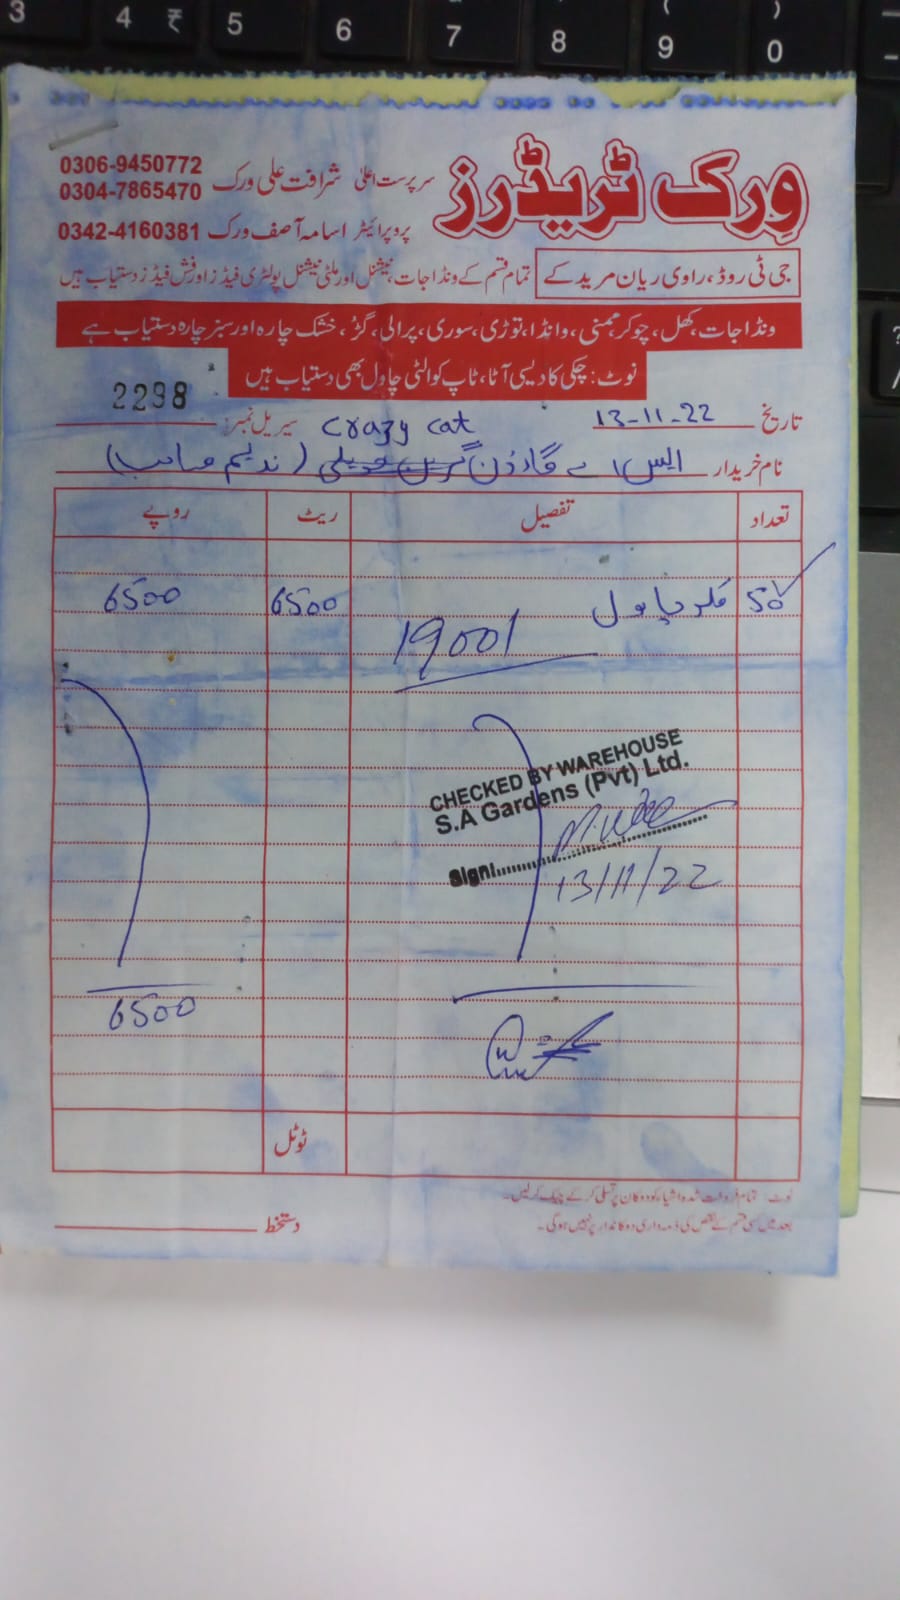 3 4 ₹ 5 6 7 8 9 0
وِرک ٹریڈرز
سرپرست اعلیٰ شرافت علی ورک 0306-9450772
0304-7865470
پروپرائیٹر اسامہ آصف ورک 0342-4160381
جی ٹی روڈ، راوی ریان مریدکے
تمام قسم کے ونڈا جات، نیشنل اور ملٹی نیشنل پولٹری فیڈز اور فش فیڈز دستیاب ہیں
ونڈا جات، کھل، چوکر، ممنی، وانڈا، توڑی، سوری، پرالی، گڑ، خشک چارہ اور سبز چارہ دستیاب ہے
نوٹ: چکی کا دیسی آٹا، ٹاپ کوالٹی چاول بھی دستیاب ہیں
تاریخ 13-11-22 crazy cat سیریل نمبر: 2298
نام خریدار ایس اے گارڈن (ندیم صاحب)
تعداد تفصیل ریٹ روپے
50 6500 6500
19001
CHECKED BY WAREHOUSE
S.A Gardens (Pvt) Ltd.
Sign:
13/11/22
6500
ٹوٹل
نوٹ: تمام فروخت شدہ اشیاء کو دوکان پر تسلی کر کے چیک کر لیں۔
بعد میں کسی قسم کے نقص کی ذمہ داری دوکاندار پر نہیں ہوگی۔
دستخط